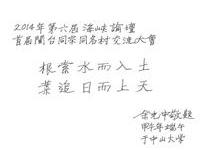 2014年第六屆海峽論壇
首屆閩台同宗同名村交流大會
根索水而入土
葉追日而上天
余光中敬題
甲午年端午
于中山大學